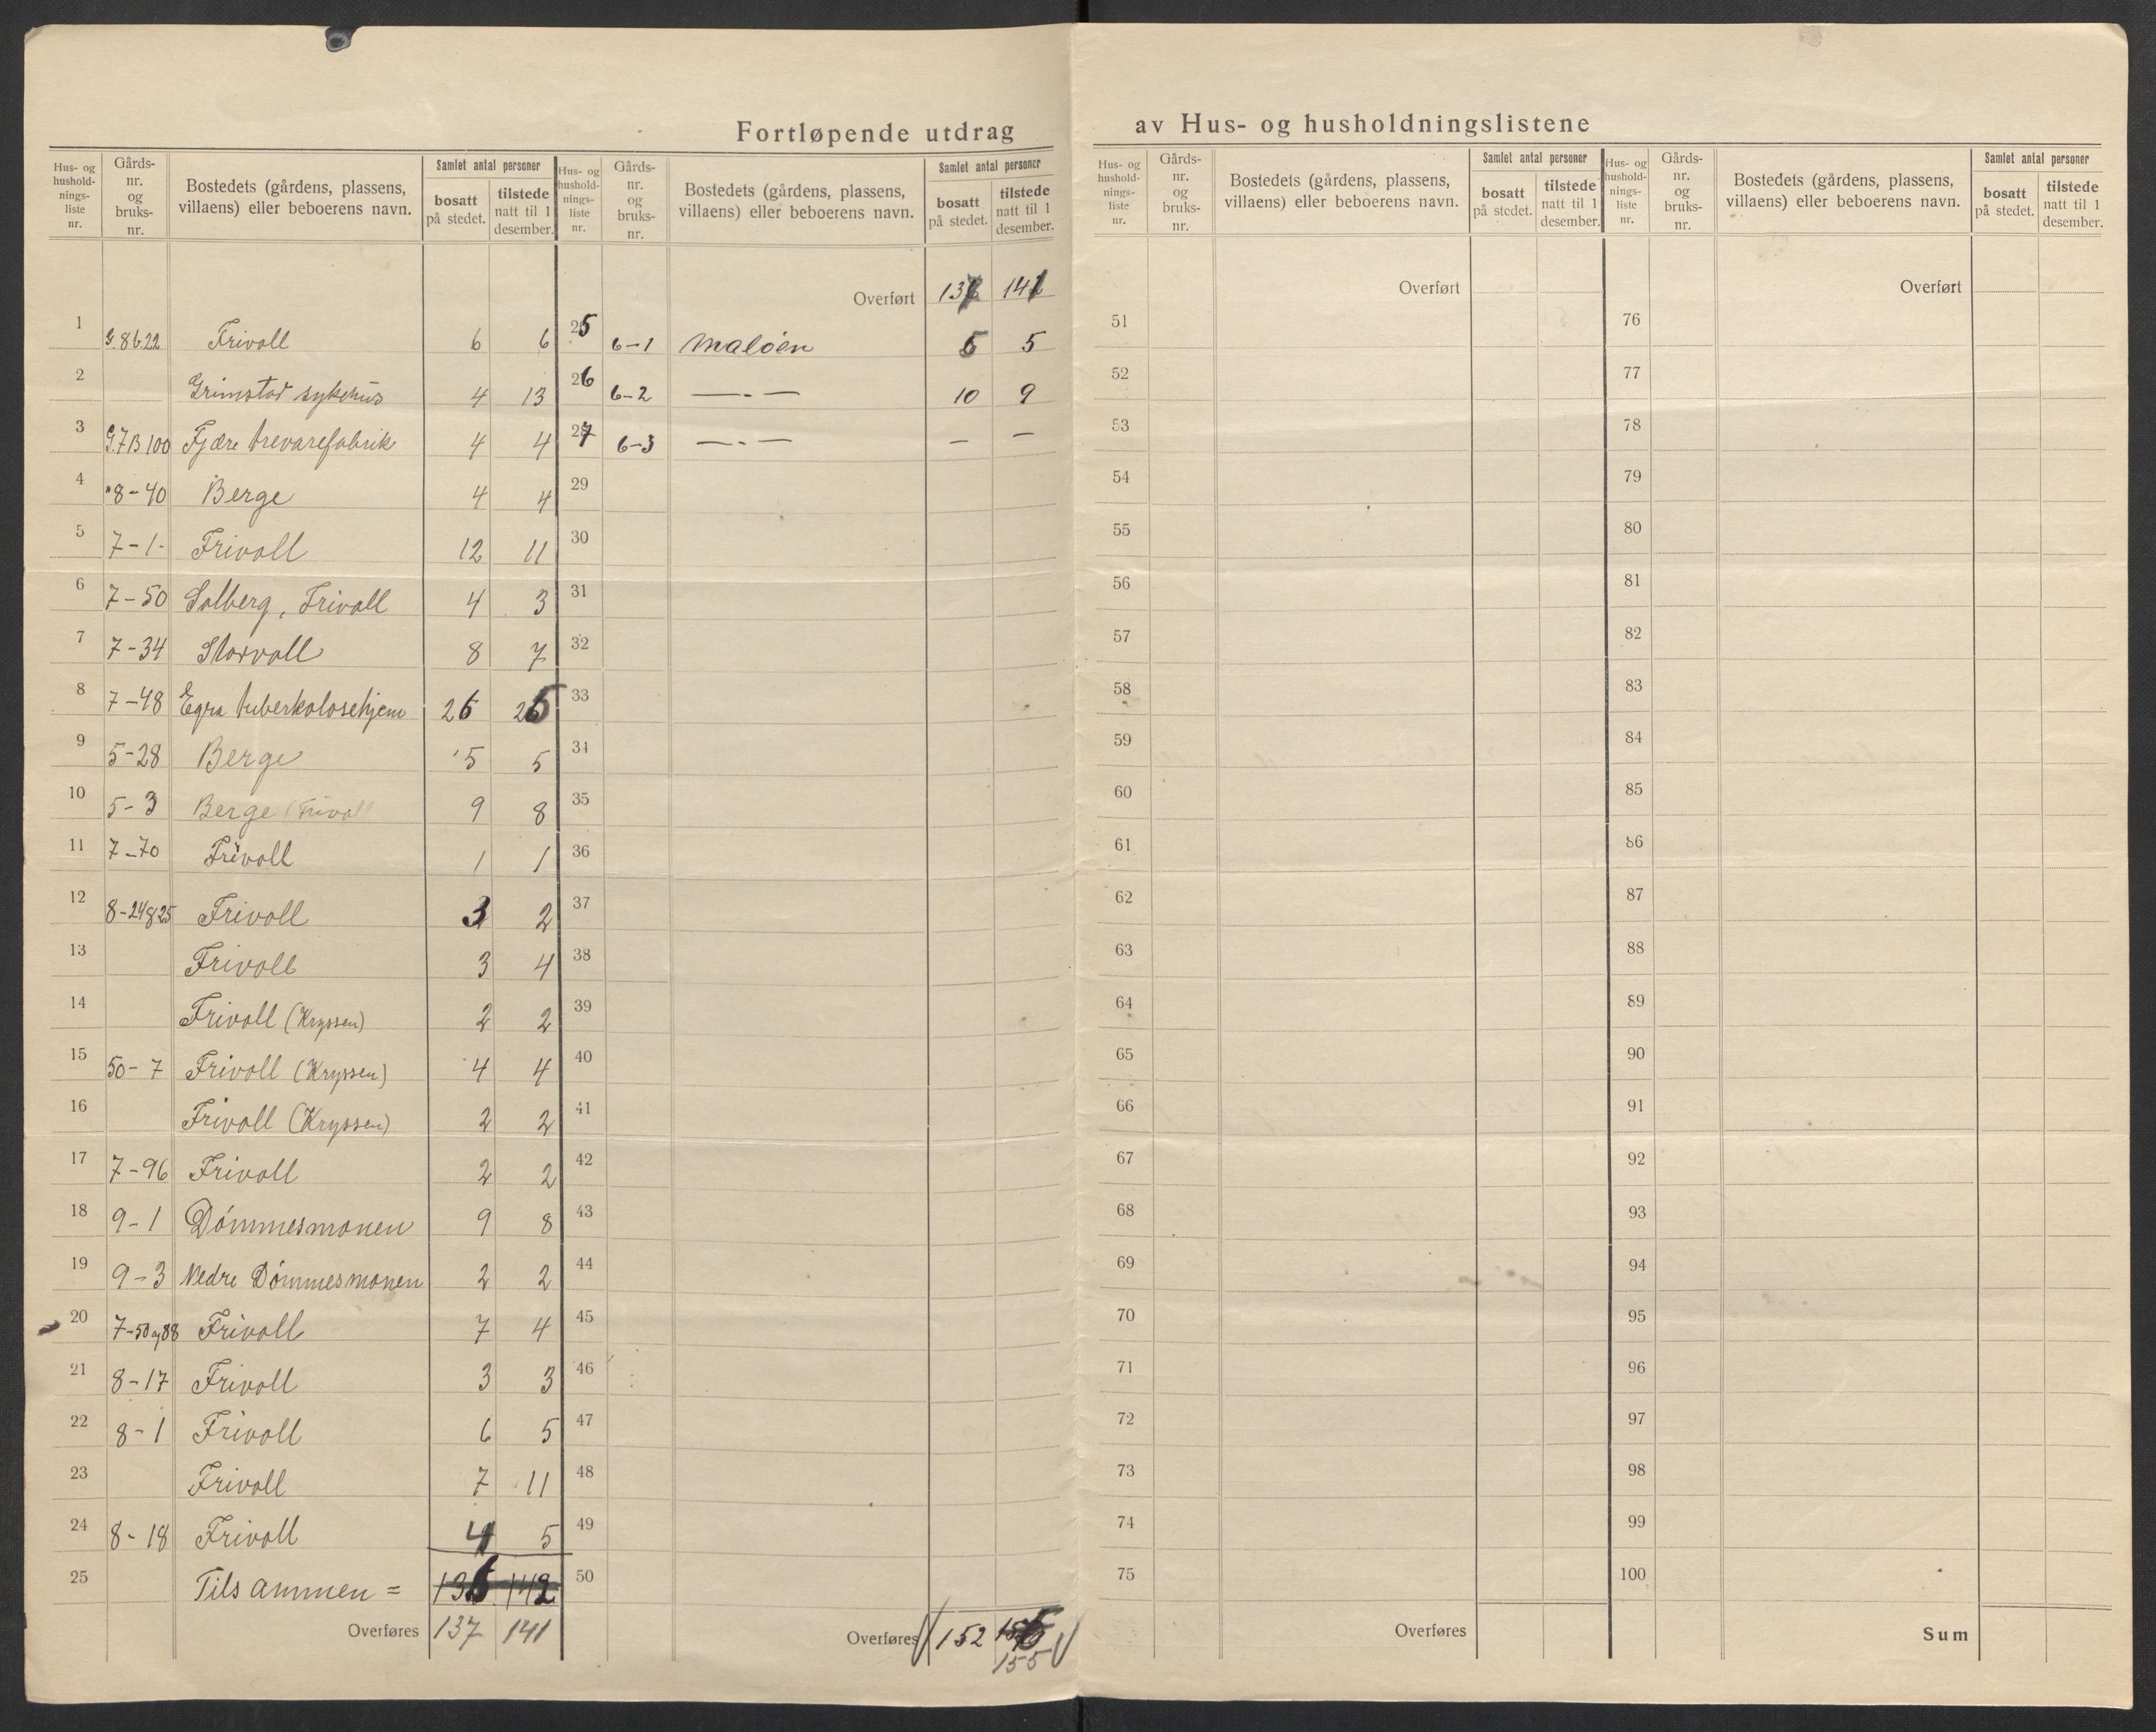 Fortløpende utdrag av Hus- og husholdningslistene
Hus- og hushold-nings-liste nr. Gårds-nr. og bruks-nr. Bostedets (gårdens, plassens, villaens) eller beboerens navn. Samlet antal personer bosatt på stedet. tilstede natt til 1 desember.
1 G.8 b.22 Frivoll 6 6
2 Grimstad sykehus 4 13
3 G.7 B 100 Fjære trevarefabrik 4 4
4 "8-40 Berge 4 4
5 7-1- Frivoll 12 11
6 7-50 Solberg, Frivoll 4 3
7 7-34 Storvoll 8 7
8 7-48 Egra tuberkolosehjem 26 25
9 5-28 Berge 5 5
10 5-3 Berge (Frivoll 9 8
11 7-70 Frivoll 1 1
12 8-24&25 Frivoll 3 2
13 Frivoll 3 4
14 Frivoll (Kryssen) 2 2
15 50-7 Frivoll (Kryssen) 4 4
16 Frivoll (Kryssen) 2 2
17 7-96 Frivoll 2 2
18 9-1 Dómmesmonen 9 8
19 9-3 Nedre Dómmesmonen 2 2
20 7-50 og 88 Frivoll 7 4
21 8-17 Frivoll 3 3
22 8-1 Frivoll 6 5
23 Frivoll 7 11
24 8-18 Frivoll 4 5
25 Tilsammen = 136 142
Overføres 137 141
Hus- og hushold-nings-liste nr. Gårds-nr. og bruks-nr. Bostedets (gårdens, plassens, villaens) eller beboerens navn. Samlet antal personer bosatt på stedet. tilstede natt til 1 desember.
Overført 137 141
25 6-1 Malóen 5 5
26 6-2 —"— 10 9
27 6-3 —"— — —
29
30
31
32
33
34
35
36
37
38
39
40
41
42
43
44
45
46
47
48
49
50
Overføres 152
155
Hus- og hushold-nings-liste nr. Gårds-nr. og bruks-nr. Bostedets (gårdens, plassens, villaens) eller beboerens navn. Samlet antal personer bosatt på stedet. tilstede natt til 1 desember.
Overført
51
52
53
54
55
56
57
58
59
60
61
62
63
64
65
66
67
68
69
70
71
72
73
74
75
Overføres
Hus- og hushold-nings-liste nr. Gårds-nr. og bruks-nr. Bostedets (gårdens, plassens, villaens) eller beboerens navn. Samlet antal personer bosatt på stedet. tilstede natt til 1 desember.
Overført
76
77
78
79
80
81
82
83
84
85
86
87
88
89
90
91
92
93
94
95
96
97
98
99
100
Sum